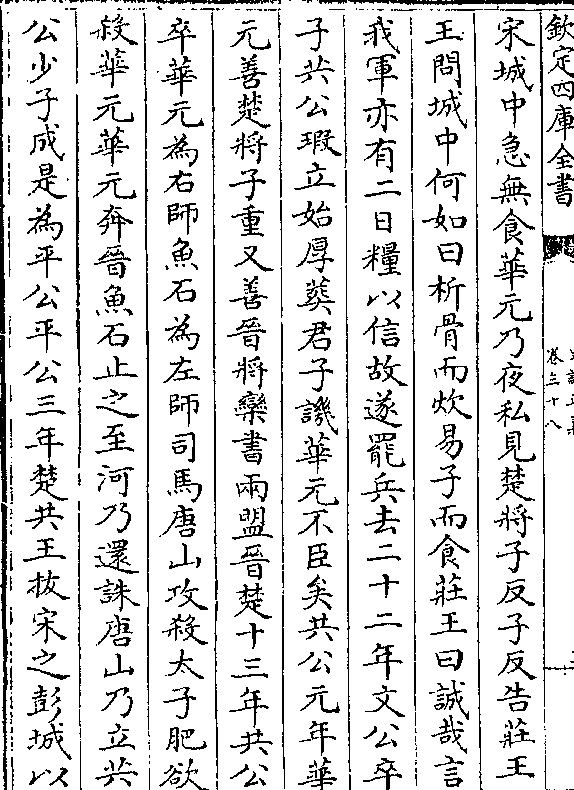 欽定四庫全書
卷三十八
宋城中急無食華元乃夜私見楚將子反子反告莊王
王問城中何如曰析骨而炊易子而食莊王曰誠哉言
我軍亦有二日糧以信故遂罷兵去二十二年文公卒
子共公瑕立始厚葬君子譏華元不臣矣共公元年華
元善楚將子重又善晉將欒書兩盟晉楚十三年共公
卒華元為右師魚石為左師司馬唐山攻殺太子肥欲
殺華元華元奔晉魚石止之至河乃還誅唐山乃立共
公少子成是為平公平公三年楚共王拔宋之彭城以